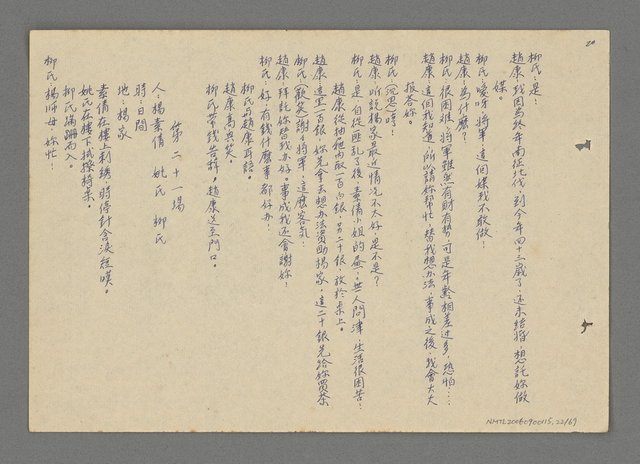 20
柳氏：是！
趙康：我因為終年南征北伐，到今年四十三歲了，還未結婚，想託妳做
媒。
柳氏：唉呀，將軍，這個媒我不敢做！
趙康：為什麼？
柳氏：很困難，將軍雖然有財有勢，可是年齡相差过多，恐怕……
趙康：這個我知道，所以請妳幫忙，替我想办法，事成之後，我會大大
报答妳。
柳氏（沉思）唔！
趙康：听說楊家最近情况不太好，是不是？
柳氏：是，自從匪乱了後，素倩小姐的 無人問津，生活很困苦！
趙康從袖內取一百兩銀，另二十銀，放於桌上。
趙康：這里一百銀，妳先會去想办法資助楊家，這二十銀先給妳買茶
柳氏（歡笑）謝了將軍，這麼客気！
趙康：拜託妳替我办好。事成我还會謝妳！
柳氏：好，有錢什麼事都好办！
柳氏与趙康耳語。
趙康高兴笑。
柳氏带錢告辞。趙康送至門口。
第二十一場
人：楊素倩 姚氏 柳氏
時：日間
地：楊家
素倩在樓上刺繡，時停針含淚短嘆。
姚氏在樓下拭擦椅桌。
柳氏蹒跚而入。
柳氏：楊師母，妳忙！
NMTL20060900115, 22/69